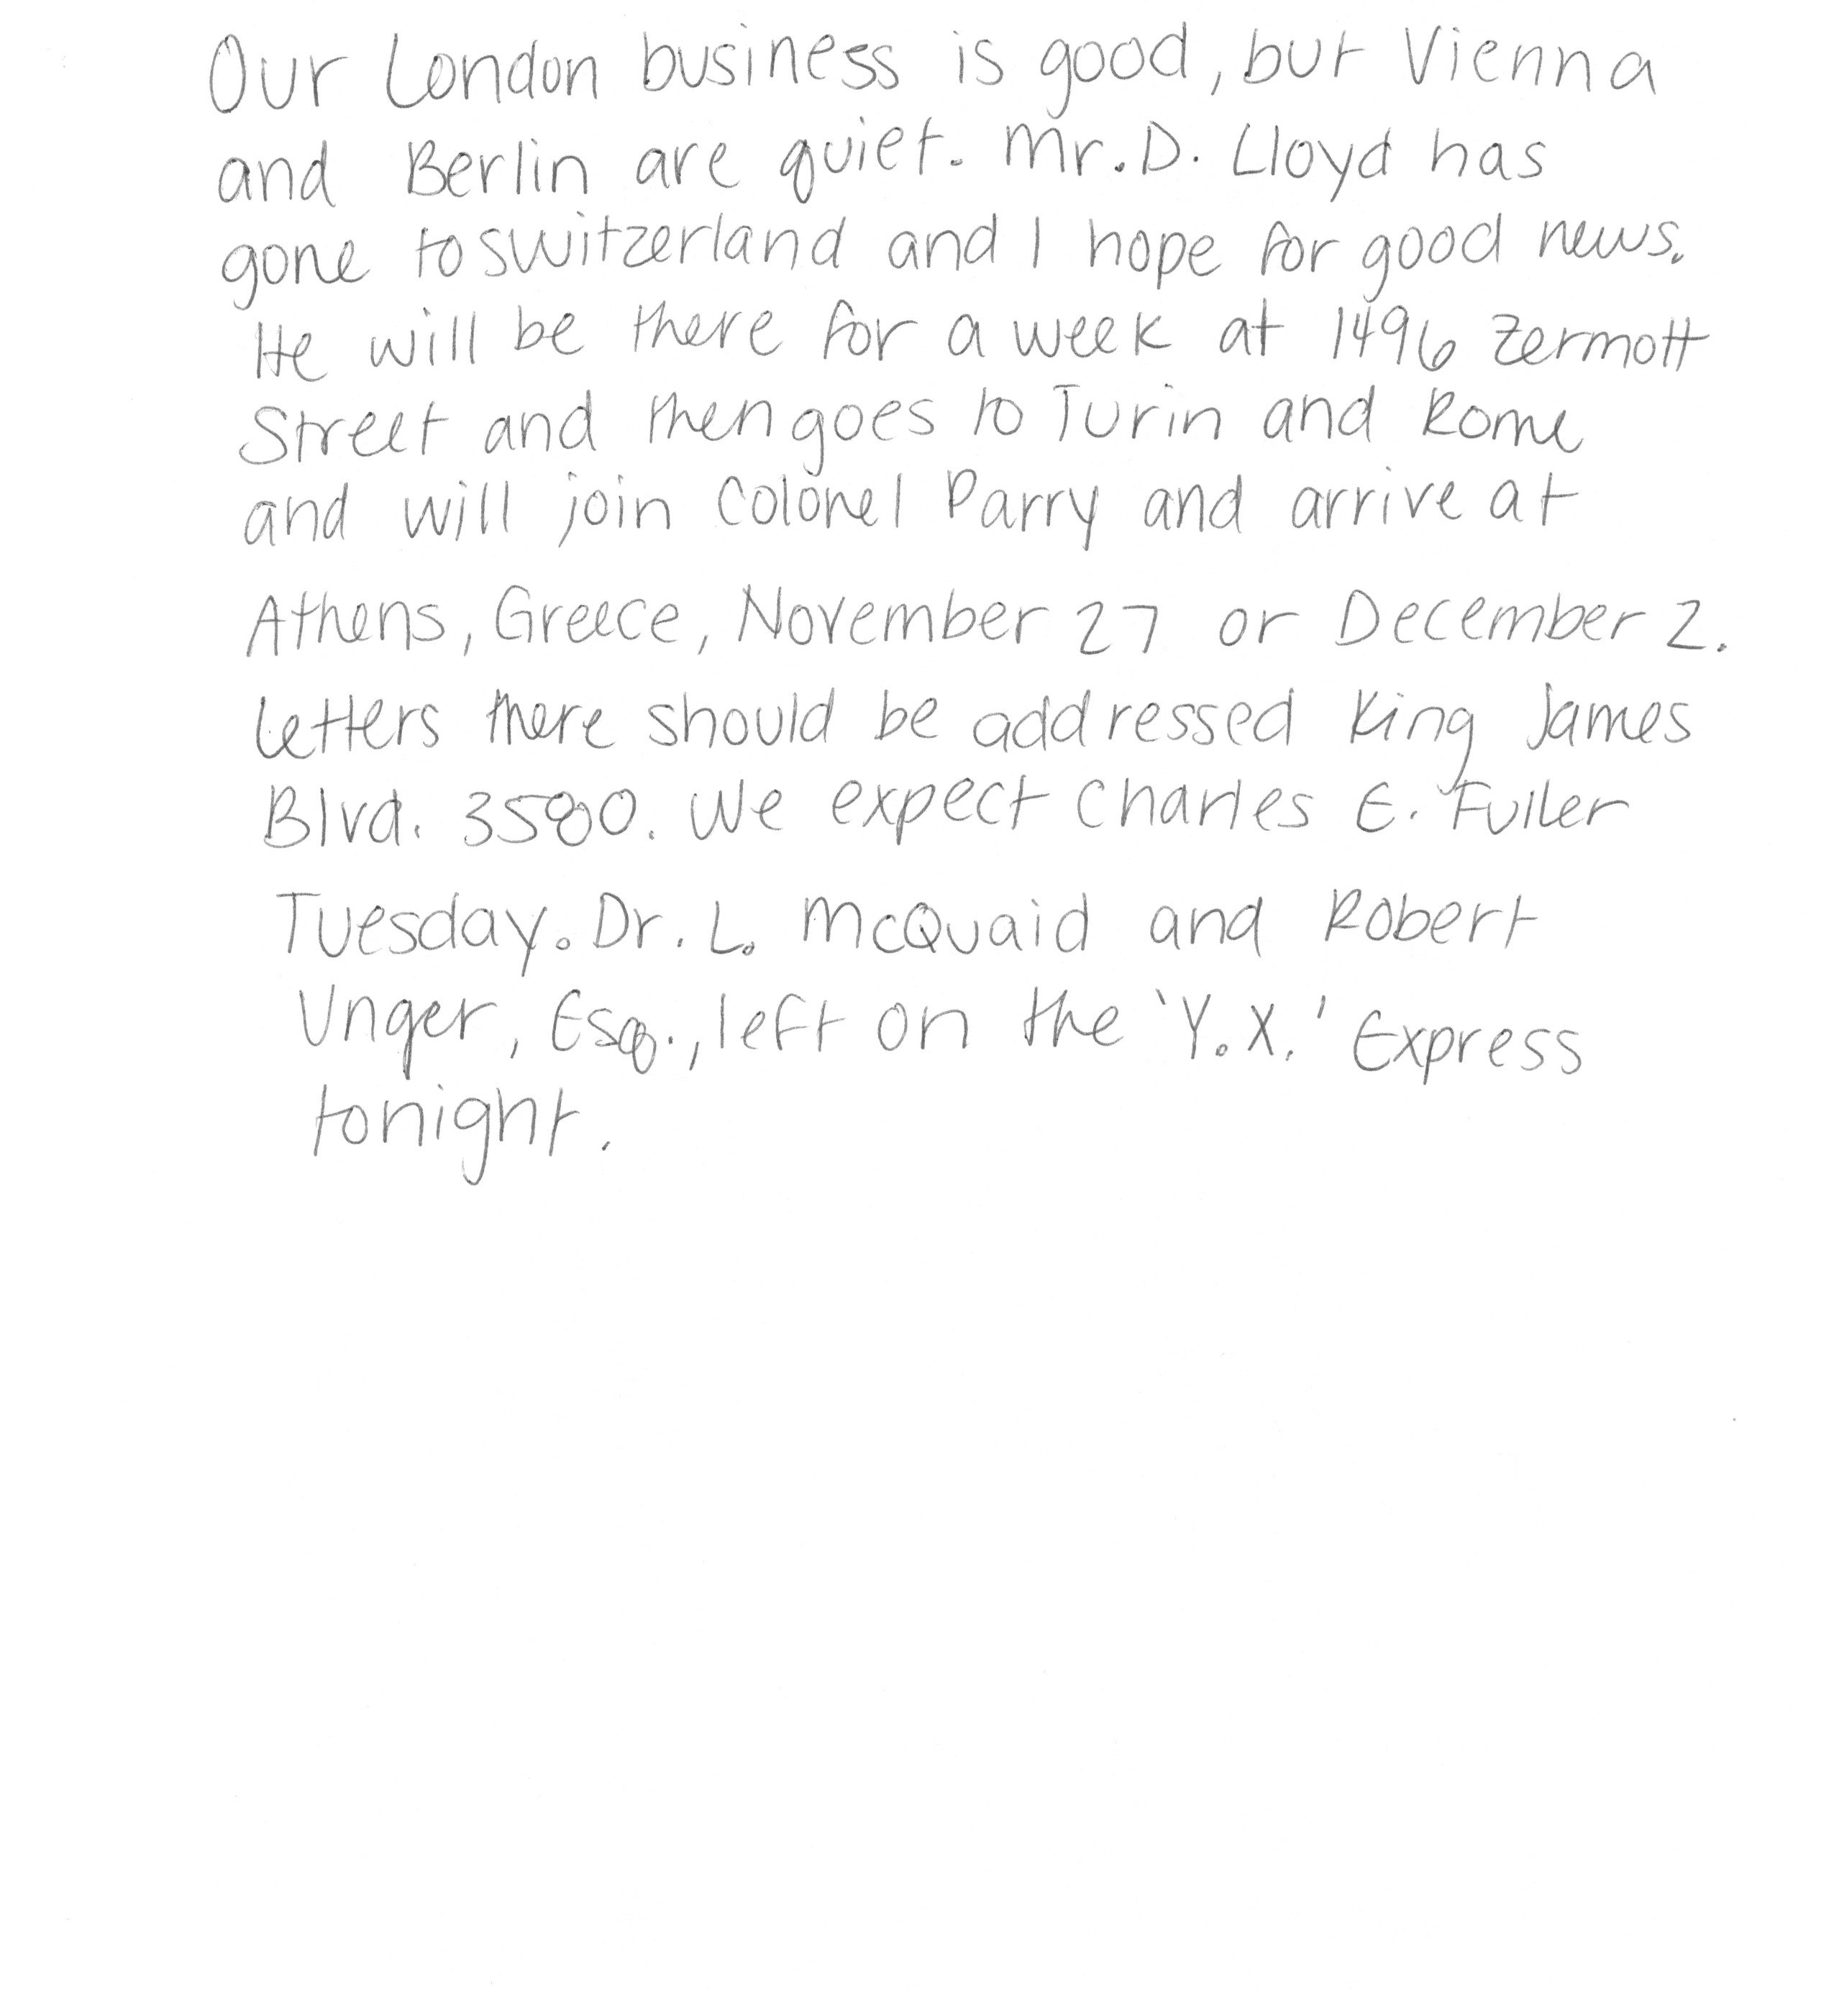 Our London business is good, but Vienna
and Berlin are quiet. Mr. D. Lloyd has
gone to switzerland and I hope for good news.
He will be there for a week at 1496 Zermott
Street and then goes to Turin and Rome
and will join Colonel Parry and arrive at
Athens, Greece, November 27 or December 2.
Letters there should be addressed King James
Blvd. 3580. We expect Charles E. Fuller
Tuesday. Dr. L. McQuaid and Robert
Unger, Esq., left on the 'Y.X.' Express
tonight.